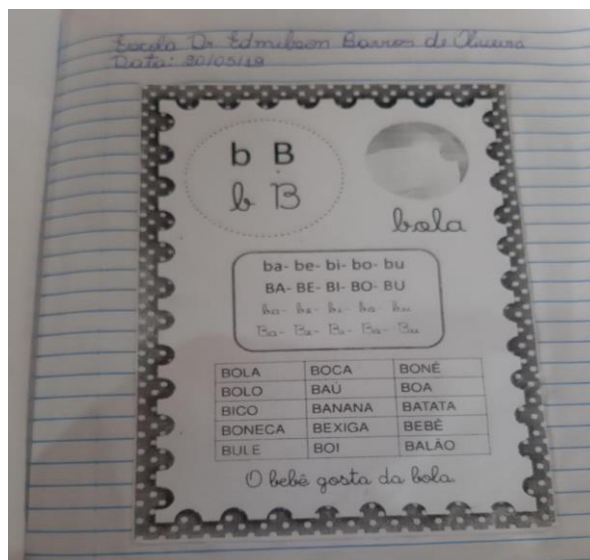 Escola Dr. Edmilson Barros de Oliveira
Data: 30/05/19
b B
b B
bola
ba- be- bi- bo- bu
BA- BE- BI- BO- BU
ba- be- bi- bo- bu
Ba- Be- Bi- Bo- Bu
BOLA BOCA BONÉ
BOLO BAÚ BOA
BICO BANANA BATATA
BONECA BEXIGA BEBÊ
BULE BOI BALÃO
O bebê gosta da bola.